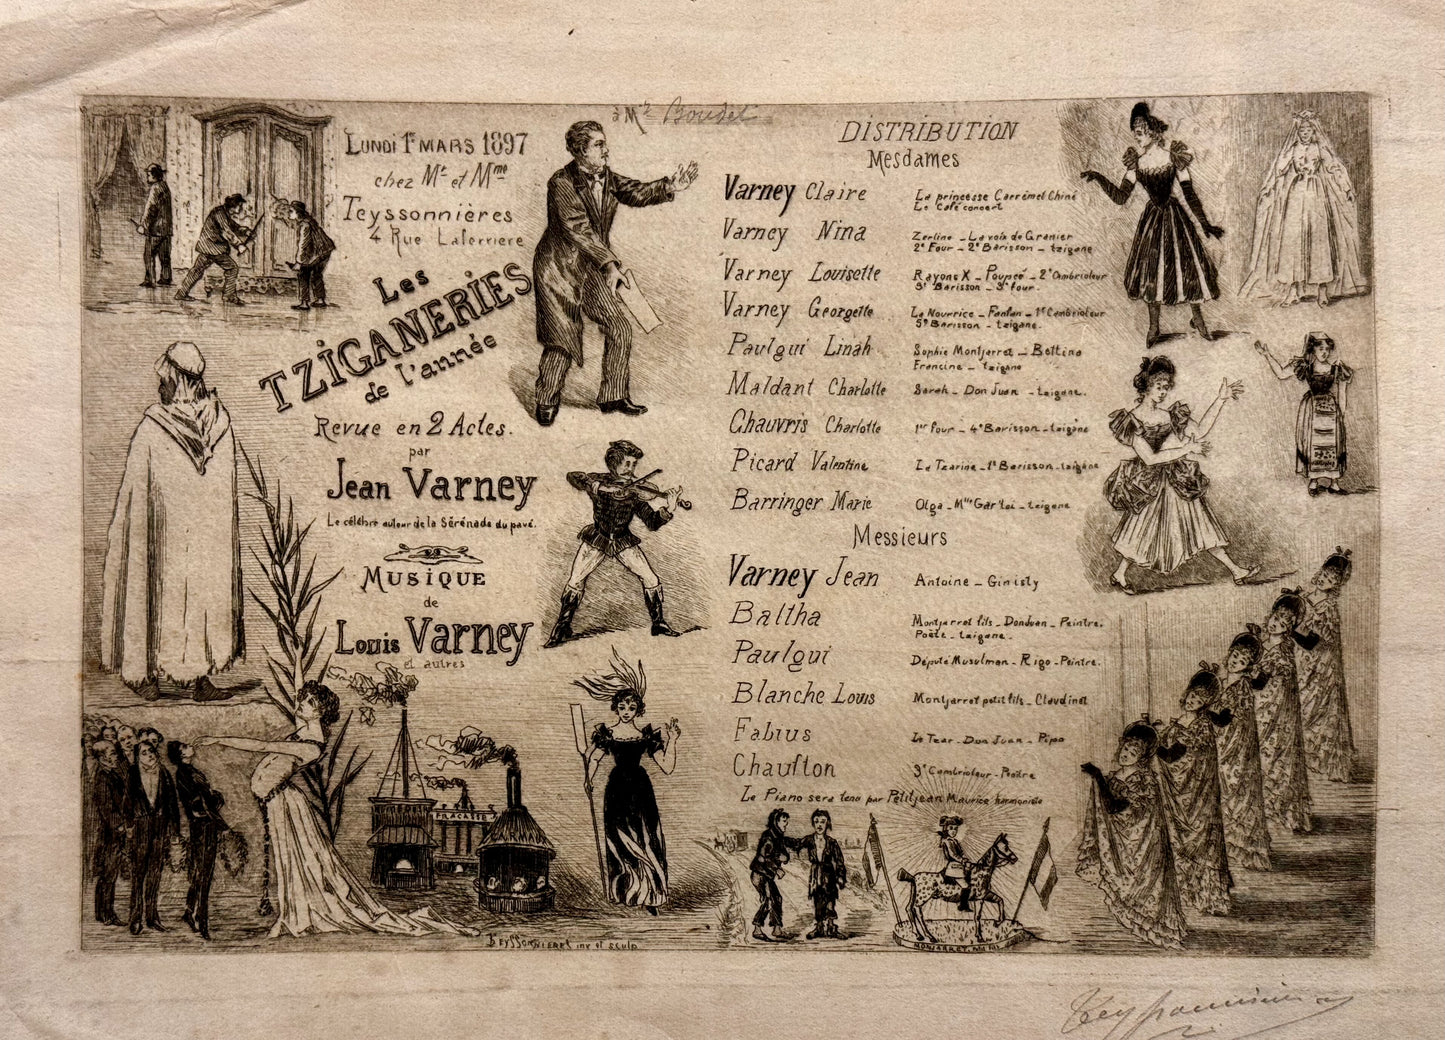 à Mr Boudet
LUNDI 1er MARS 1897
chez Mr et Mme
Teyssonnières
4 Rue Laferriere
Les
TZIGANERIES
de l'année
Revue en 2 Actes.
par
Jean Varney
Le célèbre auteur de la Sérénade du pavé.
MUSIQUE
de
Louis Varney
et autres
FRACASSE
CARMAUX
Teyssonnieres inv et sculp
DISTRIBUTION
Mesdames
Varney Claire La princesse Carrémel Chiné
Le Café concert
Varney Nina Zerline - La voix de Granier
2e Four - 2e Barisson - tzigane
Varney Louisette Rayons X - Poupée - 2e Cambrioleur
3e Barisson - 3e four.
Varney Georgette La Nourrice - Fanfan - 1er Cambrioleur
5e Barisson - tzigane.
Paulgui Linah Sophie Montjarret - Bettina
Francine - tzigane
Maldant Charlotte Sarah - Don Juan - tzigane.
Chauvris Charlotte 1er Four - 4e Barisson - tzigane
Picard Valentine La Tzarine - 1e Barisson - tzigane
Barringer Marie Olga - Mlle - tzigane
Messieurs
Varney Jean Antoine - Ginisty
Baltha Montjarret fils - Donduan - Peintre.
Poète - tzigane.
Paulgui Député Musulman - Rigo - Peintre.
Blanche Louis Montjarret petit fils - Claudinet
Fabius Le Tzar - Don Juan - Pipo
Chaufton 3e Cambrioleur -
Le Piano sera tenu par Petitjean Maurice harmoniste
MONTJARRET
Teyssonnières